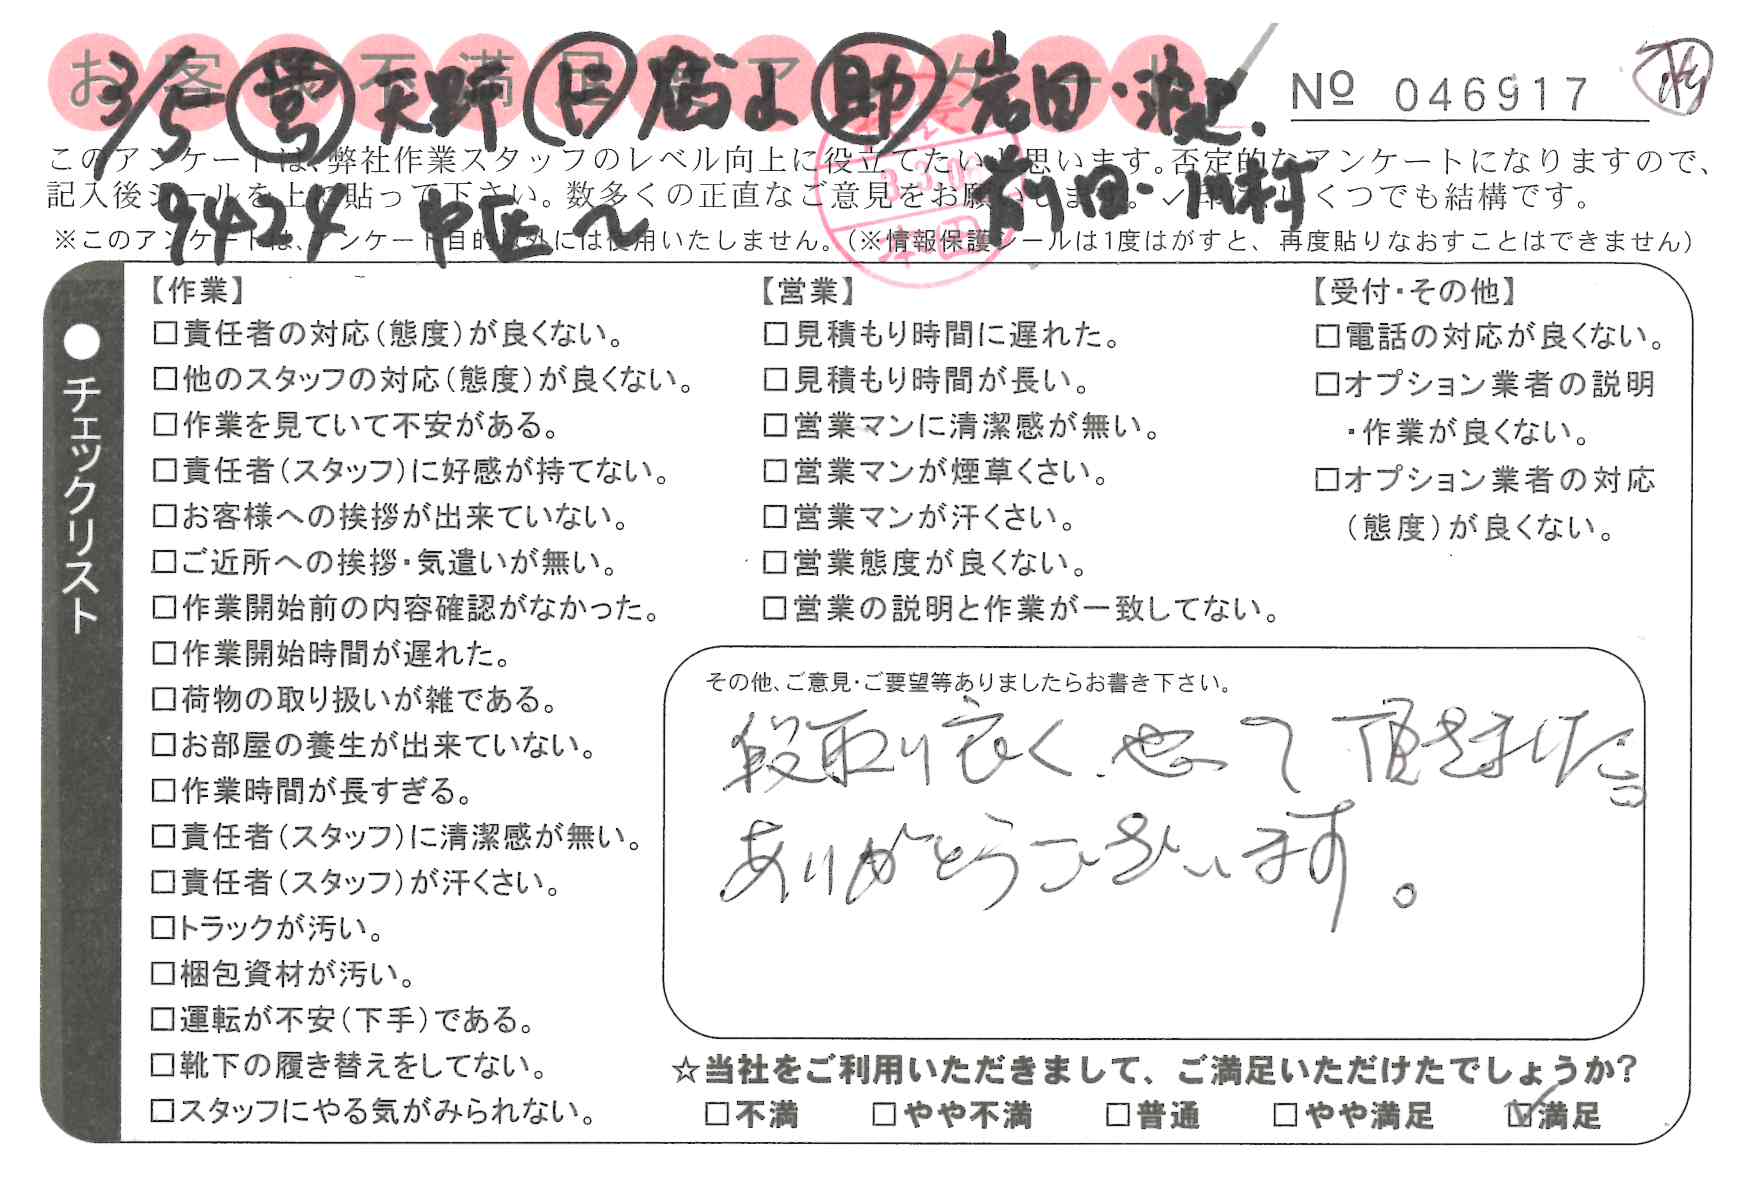 お客様不満足度アンケート
3/5 営 天野 日 助 岩田・
No 046917
9424 中区〜 前田・川村
3.3.0
本田
このアンケートは、弊社作業スタッフのレベル向上に役立てたいと思います。否定的なアンケートになりますので、
記入後シールを上に貼って下さい。数多くの正直なご意見をお願いします。✓印はいくつでも結構です。
※このアンケートは、アンケート目的以外には使用いたしません。(※情報保護シールは1度はがすと、再度貼りなおすことはできません)
●チェックリスト
【作業】
□責任者の対応(態度)が良くない。
□他のスタッフの対応(態度)が良くない。
□作業を見ていて不安がある。
□責任者(スタッフ)に好感が持てない。
□お客様への挨拶が出来ていない。
□ご近所への挨拶・気遣いが無い。
□作業開始前の内容確認がなかった。
□作業開始時間が遅れた。
□荷物の取り扱いが雑である。
□お部屋の養生が出来ていない。
□作業時間が長すぎる。
□責任者(スタッフ)に清潔感が無い。
□責任者(スタッフ)が汗くさい。
□トラックが汚い。
□梱包資材が汚い。
□運転が不安(下手)である。
□靴下の履き替えをしてない。
□スタッフにやる気がみられない。
【営業】
□見積もり時間に遅れた。
□見積もり時間が長い。
□営業マンに清潔感が無い。
□営業マンが煙草くさい。
□営業マンが汗くさい。
□営業態度が良くない。
□営業の説明と作業が一致してない。
【受付・その他】
□電話の対応が良くない。
□オプション業者の説明
・作業が良くない。
□オプション業者の対応
(態度)が良くない。
その他、ご意見・ご要望等ありましたらお書き下さい。
段取り良く、やって頂きました
ありがとうございます。
☆当社をご利用いただきまして、ご満足いただけたでしょうか?
□不満 □やや不満 □普通 □やや満足 ☑満足